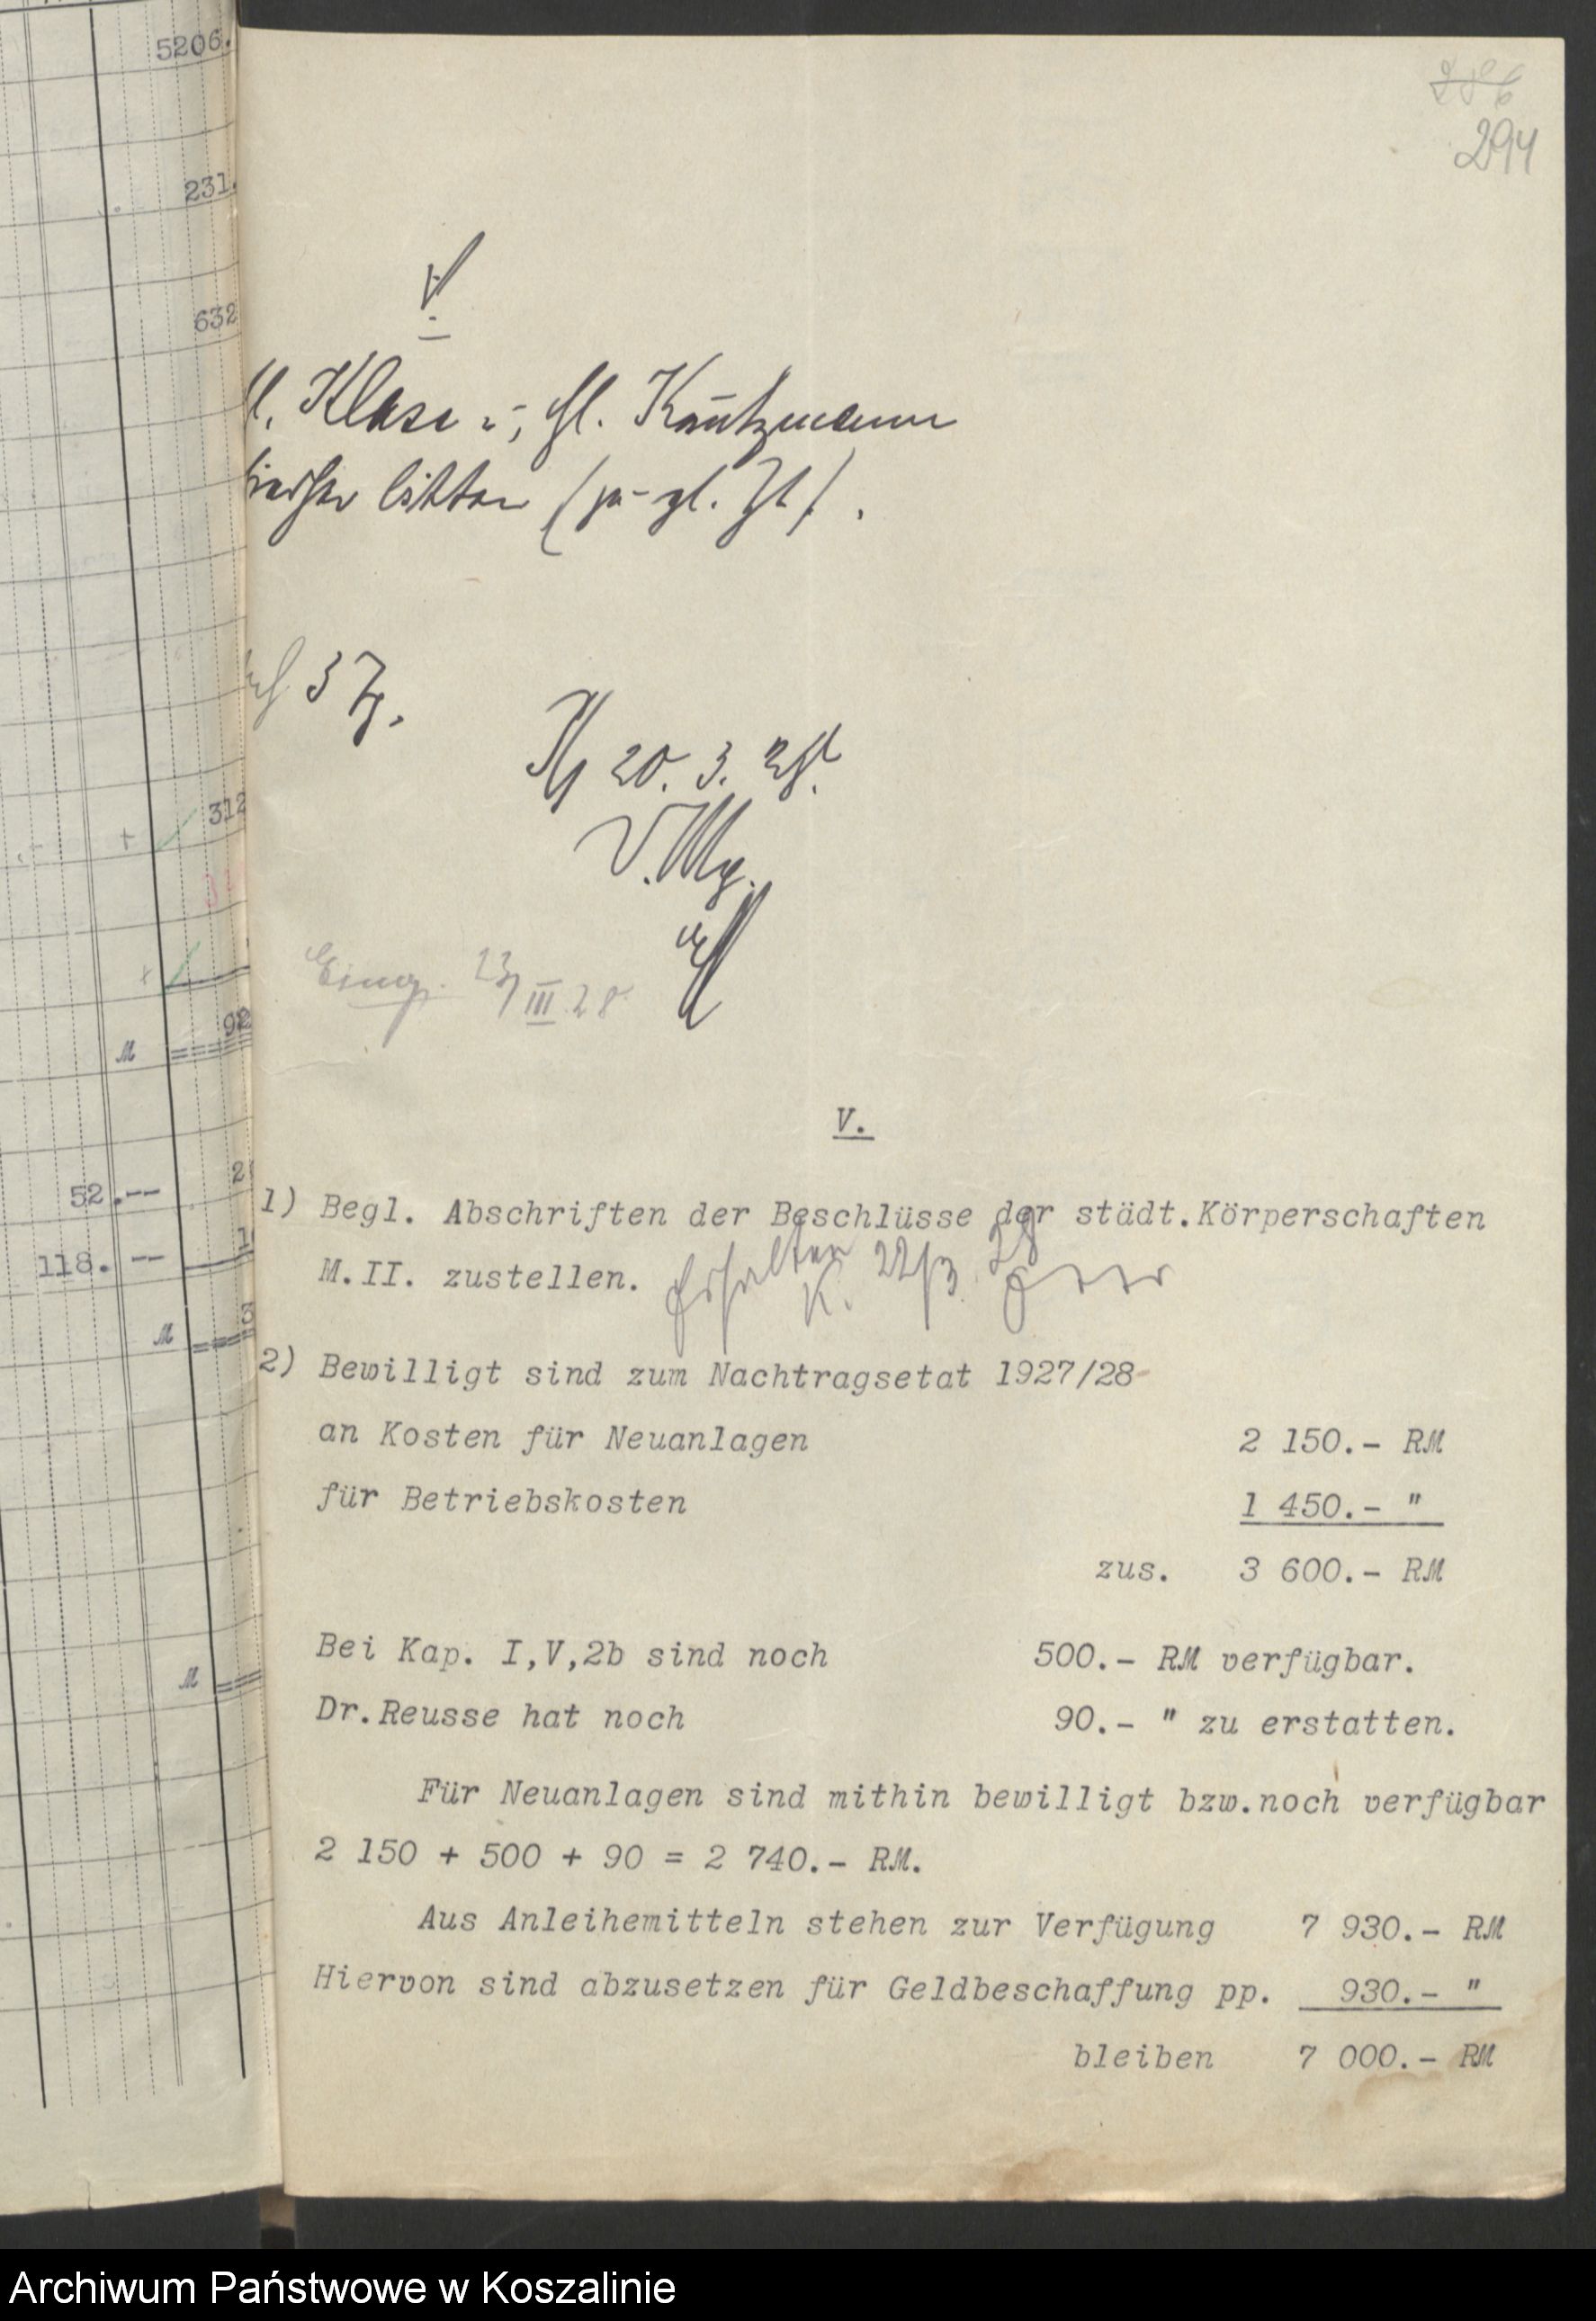 5206.
231.
632
312
M
52.--
118. --
M
M
286
294
V.
Kl. Klose u. Hl. Kautzmann
bitten
3 Z.
K, 20. 3. 28.
D. Mg.
Eing. 23/III 28
V.
1) Begl. Abschriften der Beschlüsse der städt.Körperschaften
M.II. zustellen. Erhalten
K. 22/3. 28
2) Bewilligt sind zum Nachtragsetat 1927/28-
an Kosten für Neuanlagen 2 150.- RM
für Betriebskosten 1 450.- "
zus. 3 600.- RM
Bei Kap. I,V,2b sind noch 500.- RM verfügbar.
Dr.Reusse hat noch 90.- " zu erstatten.
Für Neuanlagen sind mithin bewilligt bzw.noch verfügbar
2 150 + 500 + 90 = 2 740.- RM.
Aus Anleihemitteln stehen zur Verfügung 7 930.- RM
Hiervon sind abzusetzen für Geldbeschaffung pp. 930.- "
bleiben 7 000.- RM
Archiwum Państwowe w Koszalinie